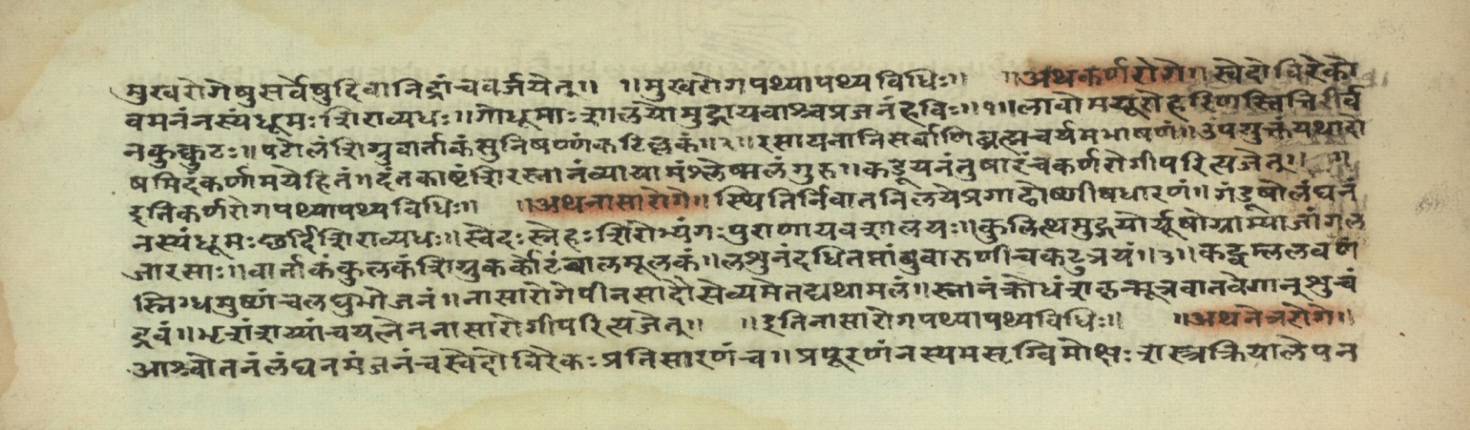 मुखरोगेषुसर्वेषुदिवानिद्रांचवर्जयेत्॥ ॥मुखरोगपथ्यापथ्यविधिः॥ ॥अथकर्णरोगे॥स्वेदोविरेको
वमनंनस्यंधूमःशिराव्यधः॥गोधूमाःशालयोमुद्गायवाश्चप्रजनंहविः॥१॥लावोमयूरोहरिणस्तित्तिरीर्व
नकुक्कुटः॥पटोलंशिग्रुवार्ताकंसुनिषण्णंकटिल्लकं॥२॥रसायनानिसर्वाणिब्रह्मचर्यमभाषणं॥उपयुक्तंयथादो
षमिदंकर्णामयेहितं॥दंतकाष्टंशिरस्नानंव्यायामंश्लेष्मलंगुरु॥कडूयनंतुषारंचकर्णरोगीपरित्यजेत्॥ ॥
इतिकर्णरोगपथ्यापथ्यविधिः॥ ॥अथनासारोगे॥स्थितिर्निवातनिलयेप्रगाढोष्णीषधारणं॥गंडूषोलंघनं
नस्यंधूमःछर्दिशिराव्यधः॥स्वेदःस्नेहःशिरोभ्यंगःपुराणायवशालयः॥कुलित्थमुद्गयोर्यूषोग्राम्योजांगल
जारसाः॥वार्ताकंकुलकंशिग्रुकर्कोटंबालमूलकं॥लशुनंदधितप्तांबुवारुणीचकटुत्रयं॥३॥कट्वम्ललवणं
स्निग्धमुष्णंचलघुभोजनं॥नासारोगेपीनसादौसेव्यमेतद्यथामलं॥स्नानंक्रोधंशकृन्मूत्रवातवेगान्शुचं
द्रवं॥भृशंशय्यांचयत्नेननासारोगीपरित्यजेत्॥ ॥इतिनासारोगपथ्यापथ्यविधिः॥ ॥अथनेत्ररोग॥
आश्चोतनंलंघनमंजनंचस्वेदोविरेकःप्रतिसारणंच॥प्रपूरणंनस्यमसृग्विमोक्षःशस्त्रक्रियालेपन